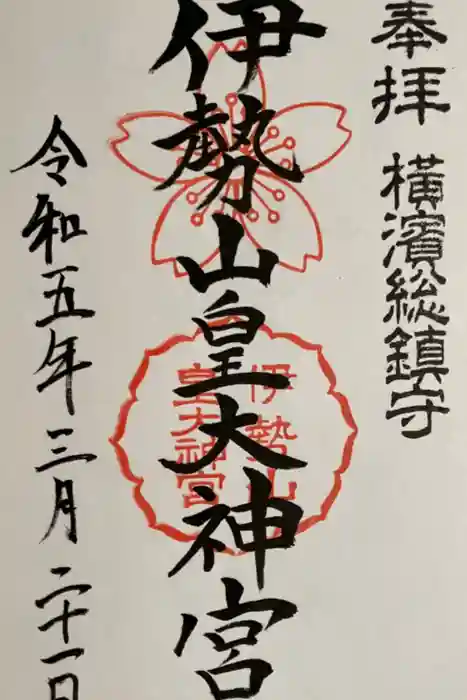 奉拝 横濱総鎮守
伊勢山皇大神宮
伊勢山
皇大神宮
令和五年三月二十一日